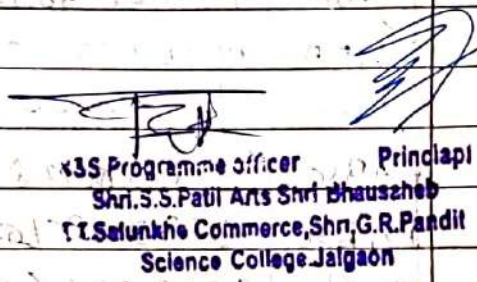 N3S Programme officer Princiapl
Shri.S.S.Patil Arts Shri Bhauszheb
T.T.Salunkhe Commerce,Shri,G.R.Pandit
Science College.Jalgaon